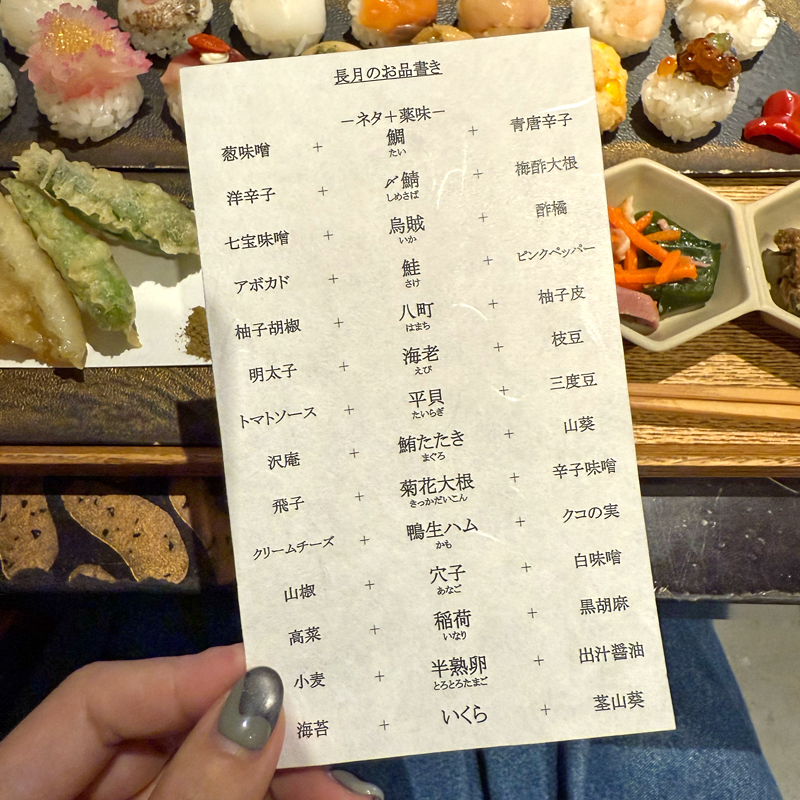 長月のお品書き
−ネタ＋薬味−
葱味噌 + 鯛 + 青唐辛子
たい
洋辛子 + 〆鯖 + 梅酢大根
しめさば
七宝味噌 + 烏賊 + 酢橘
いか
アボカド + 鮭 + ピンクペッパー
さけ
柚子胡椒 + 八町 + 柚子皮
はまち
明太子 + 海老 + 枝豆
えび
トマトソース + 平貝 + 三度豆
たいらぎ
沢庵 + 鮪たたき + 山葵
まぐろ
飛子 + 菊花大根 + 辛子味噌
きっかだいこん
クリームチーズ + 鴨生ハム + クコの実
かも
山椒 + 穴子 + 白味噌
あなご
高菜 + 稲荷 + 黒胡麻
いなり
小麦 + 半熟卵 + 出汁醤油
とろとろたまご
海苔 + いくら + 茎山葵